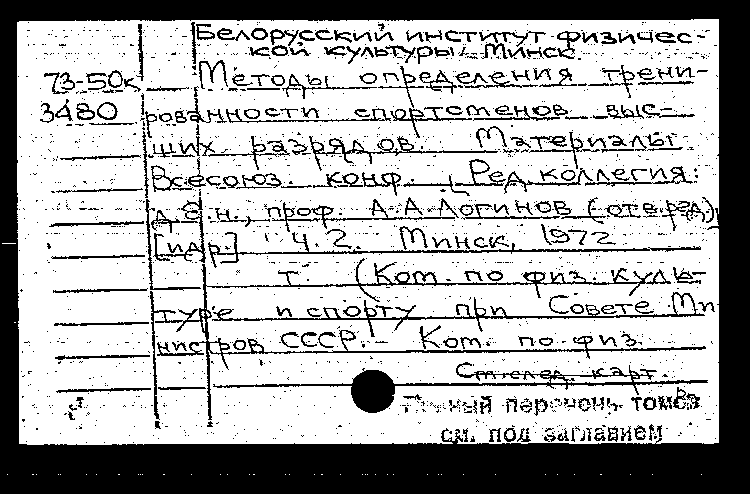 Белорусский институт физичес-
кой культуры. Минск.
73-50к Методы определения трени-
3480 рованности спортсменов выс-
ших разрядов. Материалы
Всесоюз. конф. [Ред.коллегия:
д.б.н., проф. А.А.Логинов (отв.ред.)
[и др.] Ч. 2. Минск, 1972
т. (Ком. по физ. куль-
туре и спорту при Совете Ми-
нистров СССР. - Ком. по физ.
См.след. карт.
Полный перечень томов
см. под заглавием